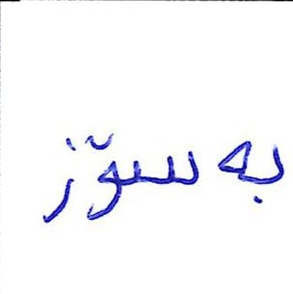 بەسۆز